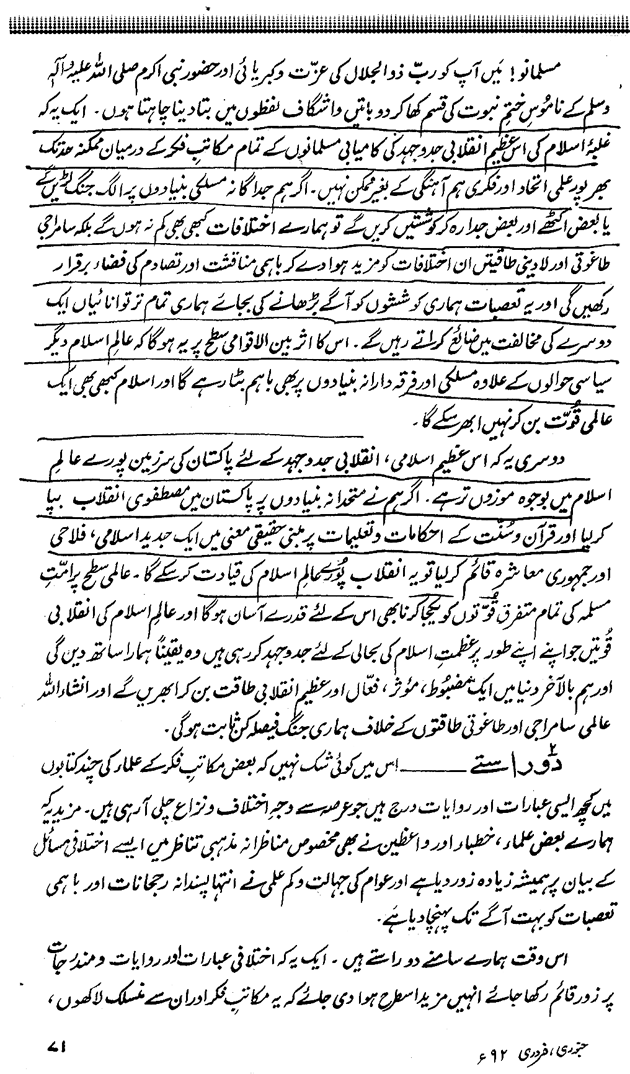 مسلمانو! میں آپ کو ربّ ذوالجلال کی عزّت وکبریائی اور حضور نبی اکرم صلی اللہ علیہ وآلہٖ
وسلم کے ناموسِ ختم نبوت کی قسم کھا کر دو باتیں واشگاف لفظوں میں بتا دینا چاہتا ہوں۔ ایک یہ کہ
غلبۂ اسلام کی اس عظیم انقلابی جدوجہد کی کامیابی مسلمانوں کے تمام مکاتبِ فکر کے درمیان ممکنہ حد تک
بھرپور علمی اتحاد اور فکری ہم آہنگی کے بغیر ممکن نہیں۔ اگر ہم جداگانہ مسلکی بنیادوں پر الگ جنگ لڑیں گے
یا بعض اکٹھے اور بعض جدا رہ کر کوششیں کریں گے تو ہمارے اختلافات کبھی بھی کم نہ ہوں گے بلکہ سامراجی
طاغوتی اور لادینی طاقتیں ان اختلافات کو مزید ہوا دے کر باہمی مناقشت اور تصادم کی فضاء برقرار
رکھیں گی اور یہ تعصبات ہماری کوششوں کو آگے بڑھانے کی بجائے ہماری تمام تر توانائیاں ایک
دوسرے کی مخالفت میں ضائع کراتے رہیں گے۔ اس کا اثر بین الاقوامی سطح پر یہ ہوگا کہ عالمِ اسلام دیگر
سیاسی حوالوں کے علاوہ مسلکی اور فرقہ دارانہ بنیادوں پر بھی باہم بٹا رہے گا اور اسلام کبھی بھی ایک
عالمی قوّت بن کر نہیں ابھر سکے گا۔
دوسری یہ کہ اس عظیم اسلامی، انقلابی جدوجہد کے لئے پاکستان کی سرزمین پورے عالمِ
اسلام میں بوجوہ موزوں تر ہے۔ اگر ہم نے متحدانہ بنیادوں پر پاکستان میں مصطفوی انقلاب بپا
کر لیا اور قرآن وسُنّت کے احکامات وتعلیمات پر مبنی حقیقی معنی میں ایک جدید اسلامی، فلاحی
اور جمہوری معاشرہ قائم کر لیا تو یہ انقلاب پُورے عالمِ اسلام کی قیادت کر سکے گا۔ عالمی سطح پر امّتِ
مسلمہ کی تمام متفرق قُوّتوں کو یکجا کرنا بھی اس کے لئے قدرے آسان ہوگا اور عالمِ اسلام کی انقلابی
قُوّتیں جو اپنے اپنے طور پر عظمتِ اسلام کی بحالی کے لئے جدوجہد کر رہی ہیں وہ یقیناً ہمارا ساتھ دین گی
اور ہم بالآخر دنیا میں ایک مضبُوط، مؤثر، فعّال اور عظیم انقلابی طاقت بن کر ابھریں گے اور انشاءاللہ
عالمی سامراجی اور طاغوتی طاقتوں کے خلاف ہماری جنگ فیصلہ کن ثابت ہوگی۔
دو راستے ——— اس میں کوئی شک نہیں کہ بعض مکاتبِ فکر کے علماء کی چند کتابوں
میں کچھ ایسی عبارات اور روایات درج ہیں جو عرصہ سے وجہِ اختلاف ونزاع چلی آ رہی ہیں۔ مزید یہ کہ
ہمارے بعض علماء، خطباء اور واعظین نے بھی مخصوص مناظرانہ مذہبی تناظر میں ایسے اختلافی مسائل
کے بیان پر ہمیشہ زیادہ زور دیا ہے اور عوام کی جہالت وکم علمی نے انتہا پسندانہ رجحانات اور باہمی
تعصبات کو بہت آگے تک پہنچا دیا ہے۔
اس وقت ہمارے سامنے دو راستے ہیں۔ ایک یہ کہ اختلافی عبارات اور روایات ومندرجات
پر زور قائم رکھا جائے انہیں مزید اسطرح ہوا دی جائے کہ یہ مکاتبِ فکر اور ان سے منسلک لاکھوں،
جنوری، فروری ۹۲ء ۷۱